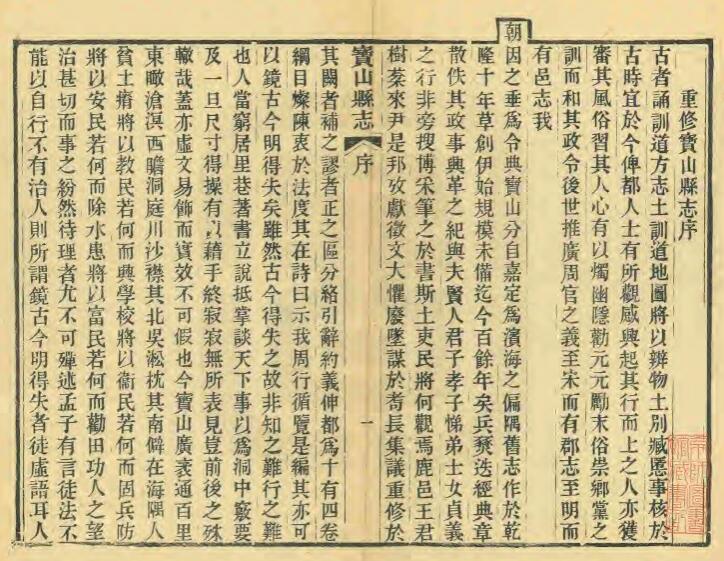 重修寶山縣志序
古者誦訓道方志土訓道地圖將以辨物土別臧慝事核於
古時宜於今俾都人士有所觀感興起其行而上之人亦獲
審其風俗習其人心有以燭幽隱勸元元勵末俗崇鄉黨之
訓而和其政令後世推廣周官之義至宋而有郡志至明而
有邑志我
朝因之垂為令典寶山分自嘉定為濱海之偏隅舊志作於乾
隆十年草創伊始規模未備迄今百餘年矣兵燹迭經典章
散佚其政事興革之紀與夫賢人君子孝子悌弟士女貞義
之行非旁搜博采筆之於書斯土吏民將何觀焉鹿邑王君
樹棻來尹是邦攷獻徵文大懼廢墜謀於耆長集議重修於
寶山縣志
序
一
其闕者補之謬者正之區分絡引辭約義伸都為十有四卷
綱目燦陳衷於法度其在詩曰示我周行循覽是編其亦可
以鏡古今明得失矣雖然古今得失之故非知之難行之難
也人當窮居里巷著書立說抵掌談天下事以為洞中窾要
及一旦尺寸得操有以藉手終寂寂無所表見豈前後之殊
轍哉蓋亦虛文易飾而實效不可假也今寶山廣袤通百里
東瞰滄溟西瞻洞庭川沙襟其北吳淞枕其南僻在海隅人
貧土瘠將以教民若何而興學校將以衞民若何而固兵防
將以安民若何而除水患將以富民若何而勸田功人之望
治甚切而事之紛然待理者尤不可殫述孟子有言徒法不
能以自行不有治人則所謂鏡古今明得失者徒虛語耳人